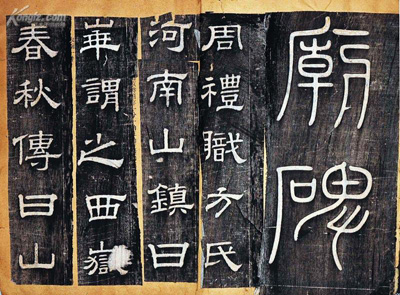 廟碑
周禮職方氏
河南山鎮曰
崋謂之西嶽
春秋傳曰山